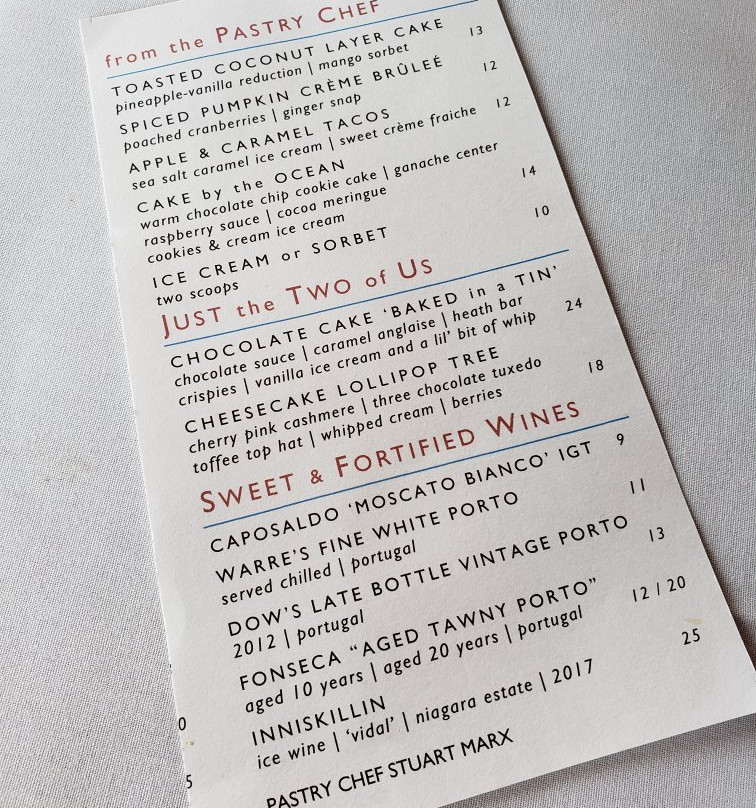 from the PASTRY CHEF
TOASTED COCONUT LAYER CAKE 13
pineapple-vanilla reduction | mango sorbet
SPICED PUMPKIN CRÈME BRÛLEÉ 12
poached cranberries | ginger snap
APPLE & CARAMEL TACOS 12
sea salt caramel ice cream | sweet crème fraiche
CAKE by the OCEAN 14
warm chocolate chip cookie cake | ganache center
raspberry sauce | cocoa meringue
cookies & cream ice cream
ICE CREAM or SORBET 10
two scoops
JUST the TWO of US
CHOCOLATE CAKE ‘BAKED in a TIN’ 24
chocolate sauce | caramel anglaise | heath bar
crispies | vanilla ice cream and a lil’ bit of whip
CHEESECAKE LOLLIPOP TREE 18
cherry pink cashmere | three chocolate tuxedo
toffee top hat | whipped cream | berries
SWEET & FORTIFIED WINES
CAPOSALDO ‘MOSCATO BIANCO’ IGT 9
WARRE’S FINE WHITE PORTO 11
served chilled | portugal
DOW’S LATE BOTTLE VINTAGE PORTO 13
2012 | portugal
FONSECA “AGED TAWNY PORTO” 12 | 20
aged 10 years | aged 20 years | portugal
INNISKILLIN 25
ice wine | ‘vidal’ | niagara estate | 2017
PASTRY CHEF STUART MARX
0
5